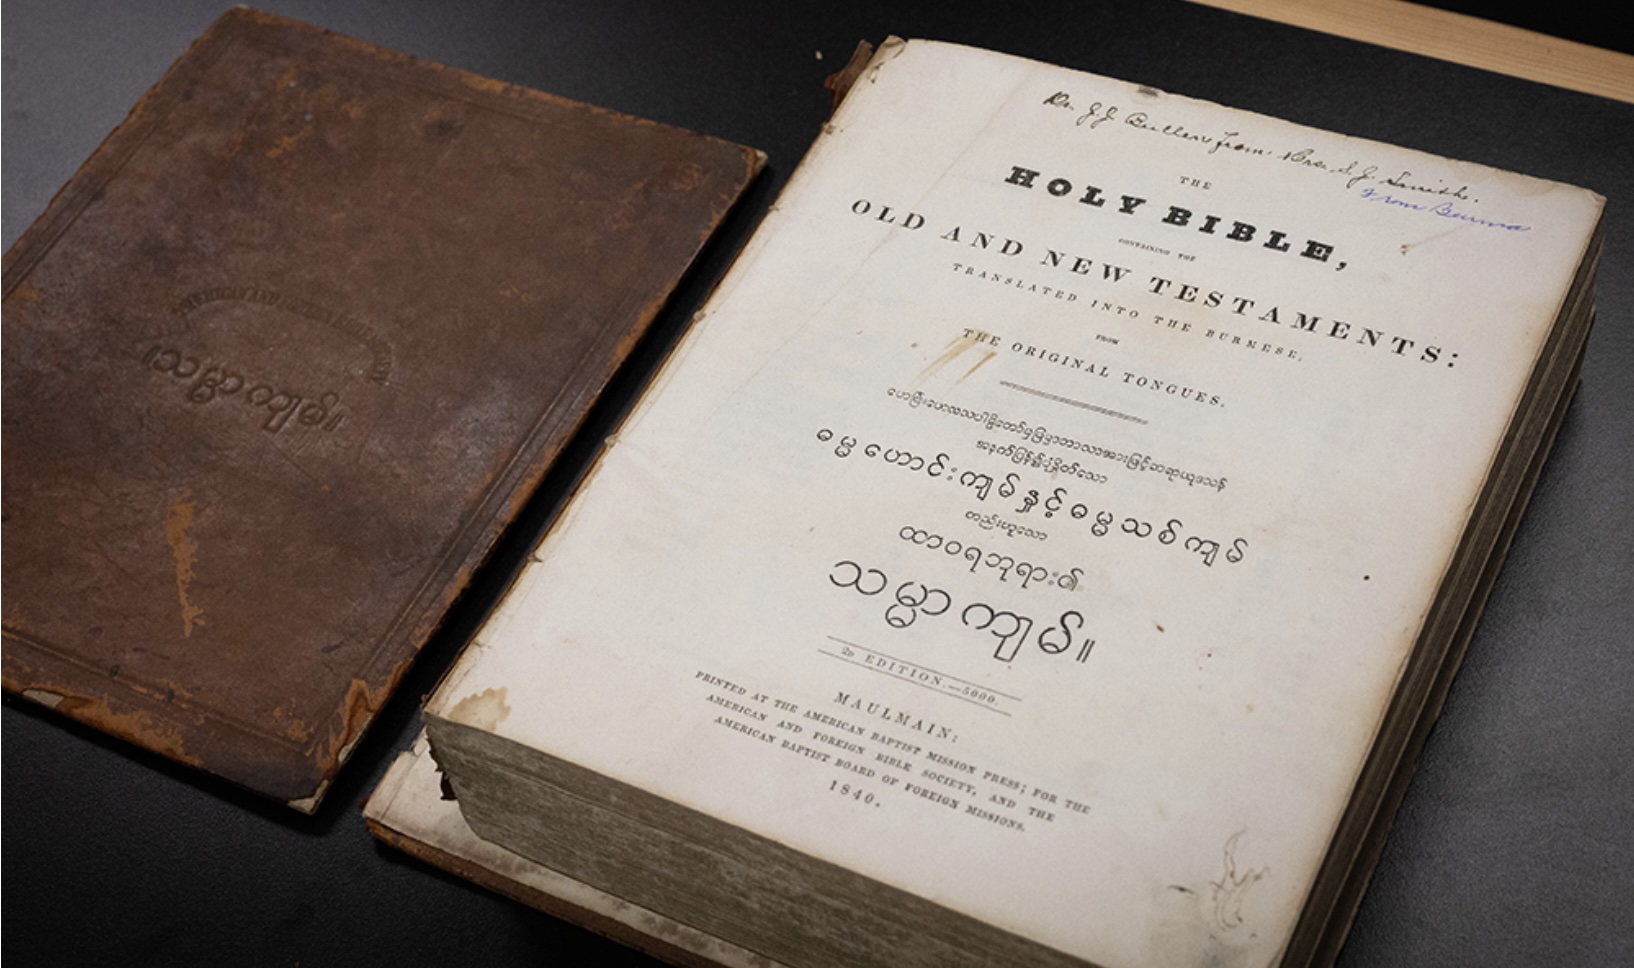 Dr. J. J. Butler from Mrs. S. J. Smith.
From Burma
THE
HOLY BIBLE,
CONTAINING THE
OLD AND NEW TESTAMENTS:
TRANSLATED INTO THE BURMESE,
FROM
THE ORIGINAL TONGUES.
အနက်ပြန်၍ပုံနှိပ်သော
ဓမ္မဟောင်းကျမ်နှင့်ဓမ္မသစ်ကျမ်
တည်းဟူသော
ထာဝရဘုရား၏
သမ္မာကျမ်။
2D EDITION.—5000.
MAULMAIN:
PRINTED AT THE AMERICAN BAPTIST MISSION PRESS; FOR THE
AMERICAN AND FOREIGN BIBLE SOCIETY, AND THE
AMERICAN BAPTIST BOARD OF FOREIGN MISSIONS.
1840.